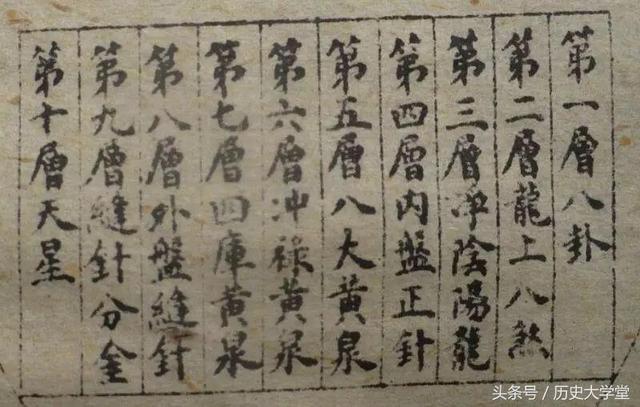 第一層八卦
第二層龍上八煞
第三層淨陰陽龍
第四層内盤正針
第五層八大黄泉
第六層冲祿黄泉
第七層四庫黄泉
第八層外盤縫針
第九層縫針分金
第十層天星
头条号／历史大学堂